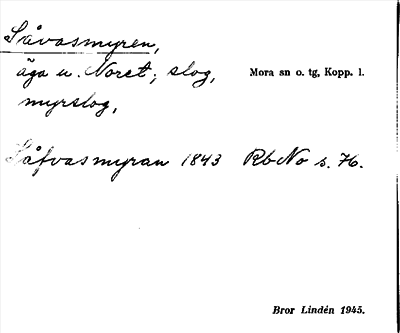 Såvasmyren,
äga u. Noret; slog, Mora sn o. tg, Kopp. l.
myrslog,
Såfvasmyran 1843 RbNo s. 76.
Bror Lindén 1945.